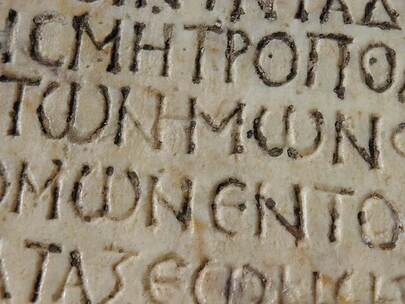 ΝΤΑΔ
ΙϹΜΗΤΡΟΠΟ
ΤωΝΗΜωΝ
ΟΜωΝЄΝΤΟ
ΑΤΑΣЄϹ